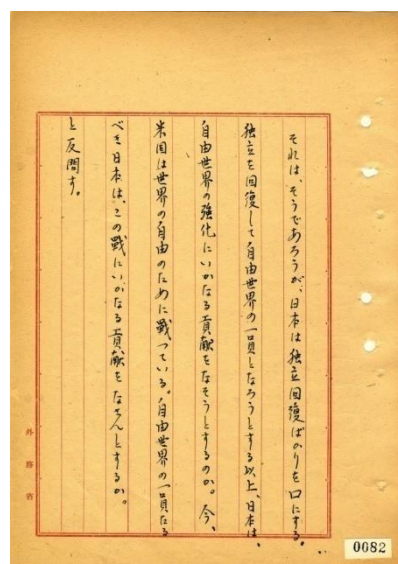 それは、そうであろうが、日本は独立回復ばかりを口にする。
独立を回復して自由世界の一員となろうとする以上、日本は、
自由世界の強化にいかなる貢献をなそうとするのか。今、
米国は世界の自由のために戰っている。自由世界の一員たる
べき日本は、この戰にいかなる貢献をなさんとするか。
と反問す。
外務省
0082